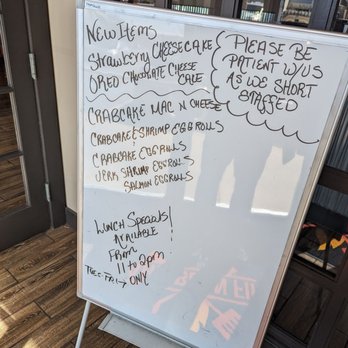 New Items
Strawberry Cheesecake
Oreo Chocolate Cheese
Cake
Crabcake Mac N Cheese
Crabcake & Shrimp Eggrolls
Crabcake Eggrolls
Jerk Shrimp Eggrolls
Salmon Eggrolls
Please be
patient w/us
as we short
staffed
Lunch Specials!
Available
From
11 to 2pm
Tues-Fri → only